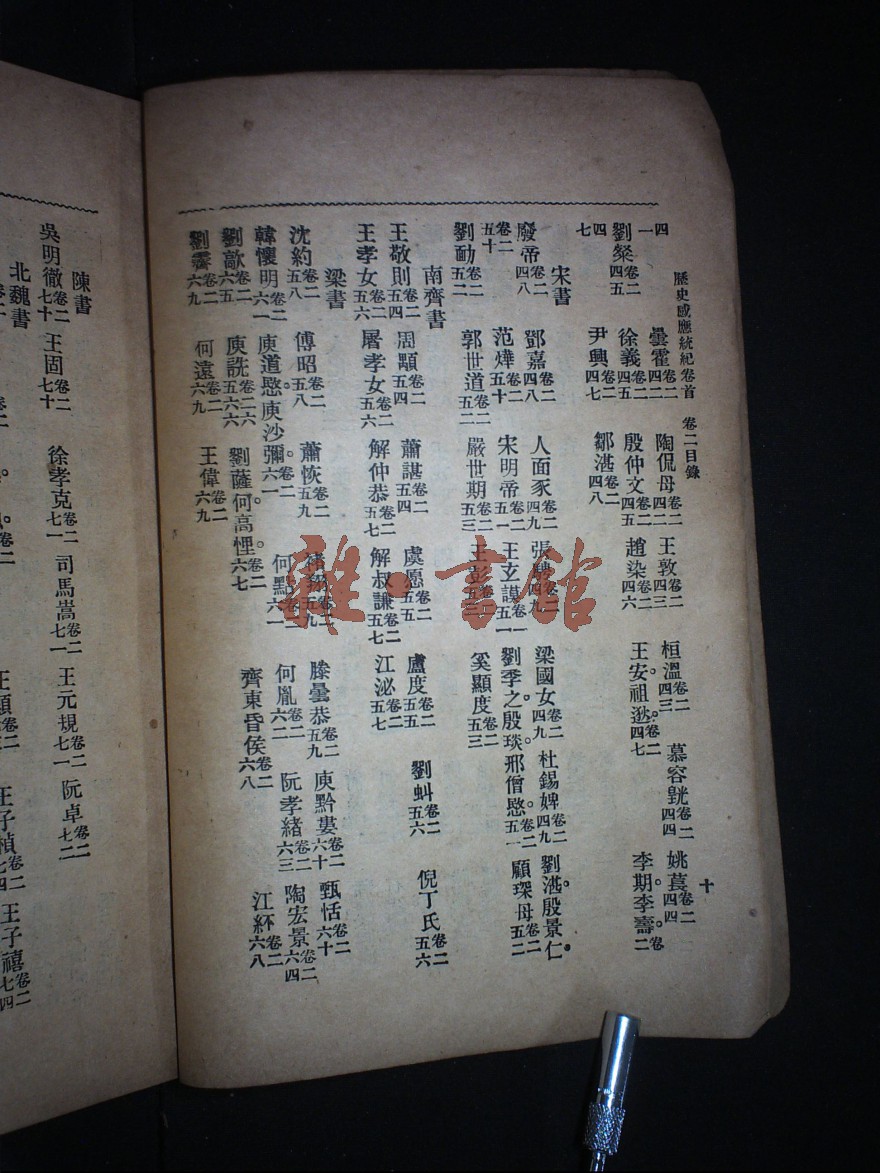 歷史感應統紀卷首 卷二目錄 十
四一 曇霍卷二四二 陶侃母卷二四二 王敦卷二四三 桓溫卷二四三 慕容皝卷二四四 姚萇卷二四四
劉粲卷二四五 徐義卷二四五 殷仲文卷二四五 趙染卷二四六 王安。祖逖。卷二四七 李期。李壽。卷二
四七 尹興卷二四七 鄒湛卷二四八
宋書
廢帝卷二四八 鄧嘉卷二四八 人面豕卷二四九 張騁卷二四九 梁國女卷二四九 杜錫婢卷二四九 劉湛。殷景仁。
卷二五十 范燁卷二五十 宋明帝卷二五一 王玄謨卷二五一 劉季之。殷琰。邢僧愍。卷二五一 顧琛母卷二五二
劉勔卷二五二 郭世道卷二五二 嚴世期卷二五三 王彭卷二五三 奚顯度卷二五三
南齊書
王敬則卷二五四 周顒卷二五四 蕭諶卷二五四 虞愿卷二五五 盧度卷二五五 劉虯卷二五六 倪丁氏卷二五六
王孝女卷二五六 屠孝女卷二五六 解仲恭卷二五七 解叔謙卷二五七 江泌卷二五七
梁書
沈約卷二五八 傅昭卷二五八 蕭恢卷二五九 卷二五九 滕曇恭卷二五九 庾黔婁卷二六十 甄恬卷二六十
韓懷明卷二六一 庾道愍。庾沙彌。卷二六一 何點卷二六一 何胤卷二六二 阮孝緒卷二六三 陶宏景卷二六四
劉歊卷二六五 庾詵卷二六五六六 劉薩何。高悝。卷二六七 齊東昏侯卷二六八 江紑卷二六八
劉霽卷二六九 何遠卷二六九 王偉卷二六九
陳書
吳明徹卷二七十 王固卷二七十 徐孝克卷二七一 司馬嵩卷二七一 王元規卷二七一 阮卓卷二七二
北魏書
卷二 王子楨卷二七四 王子禧卷二七四
雜·書館